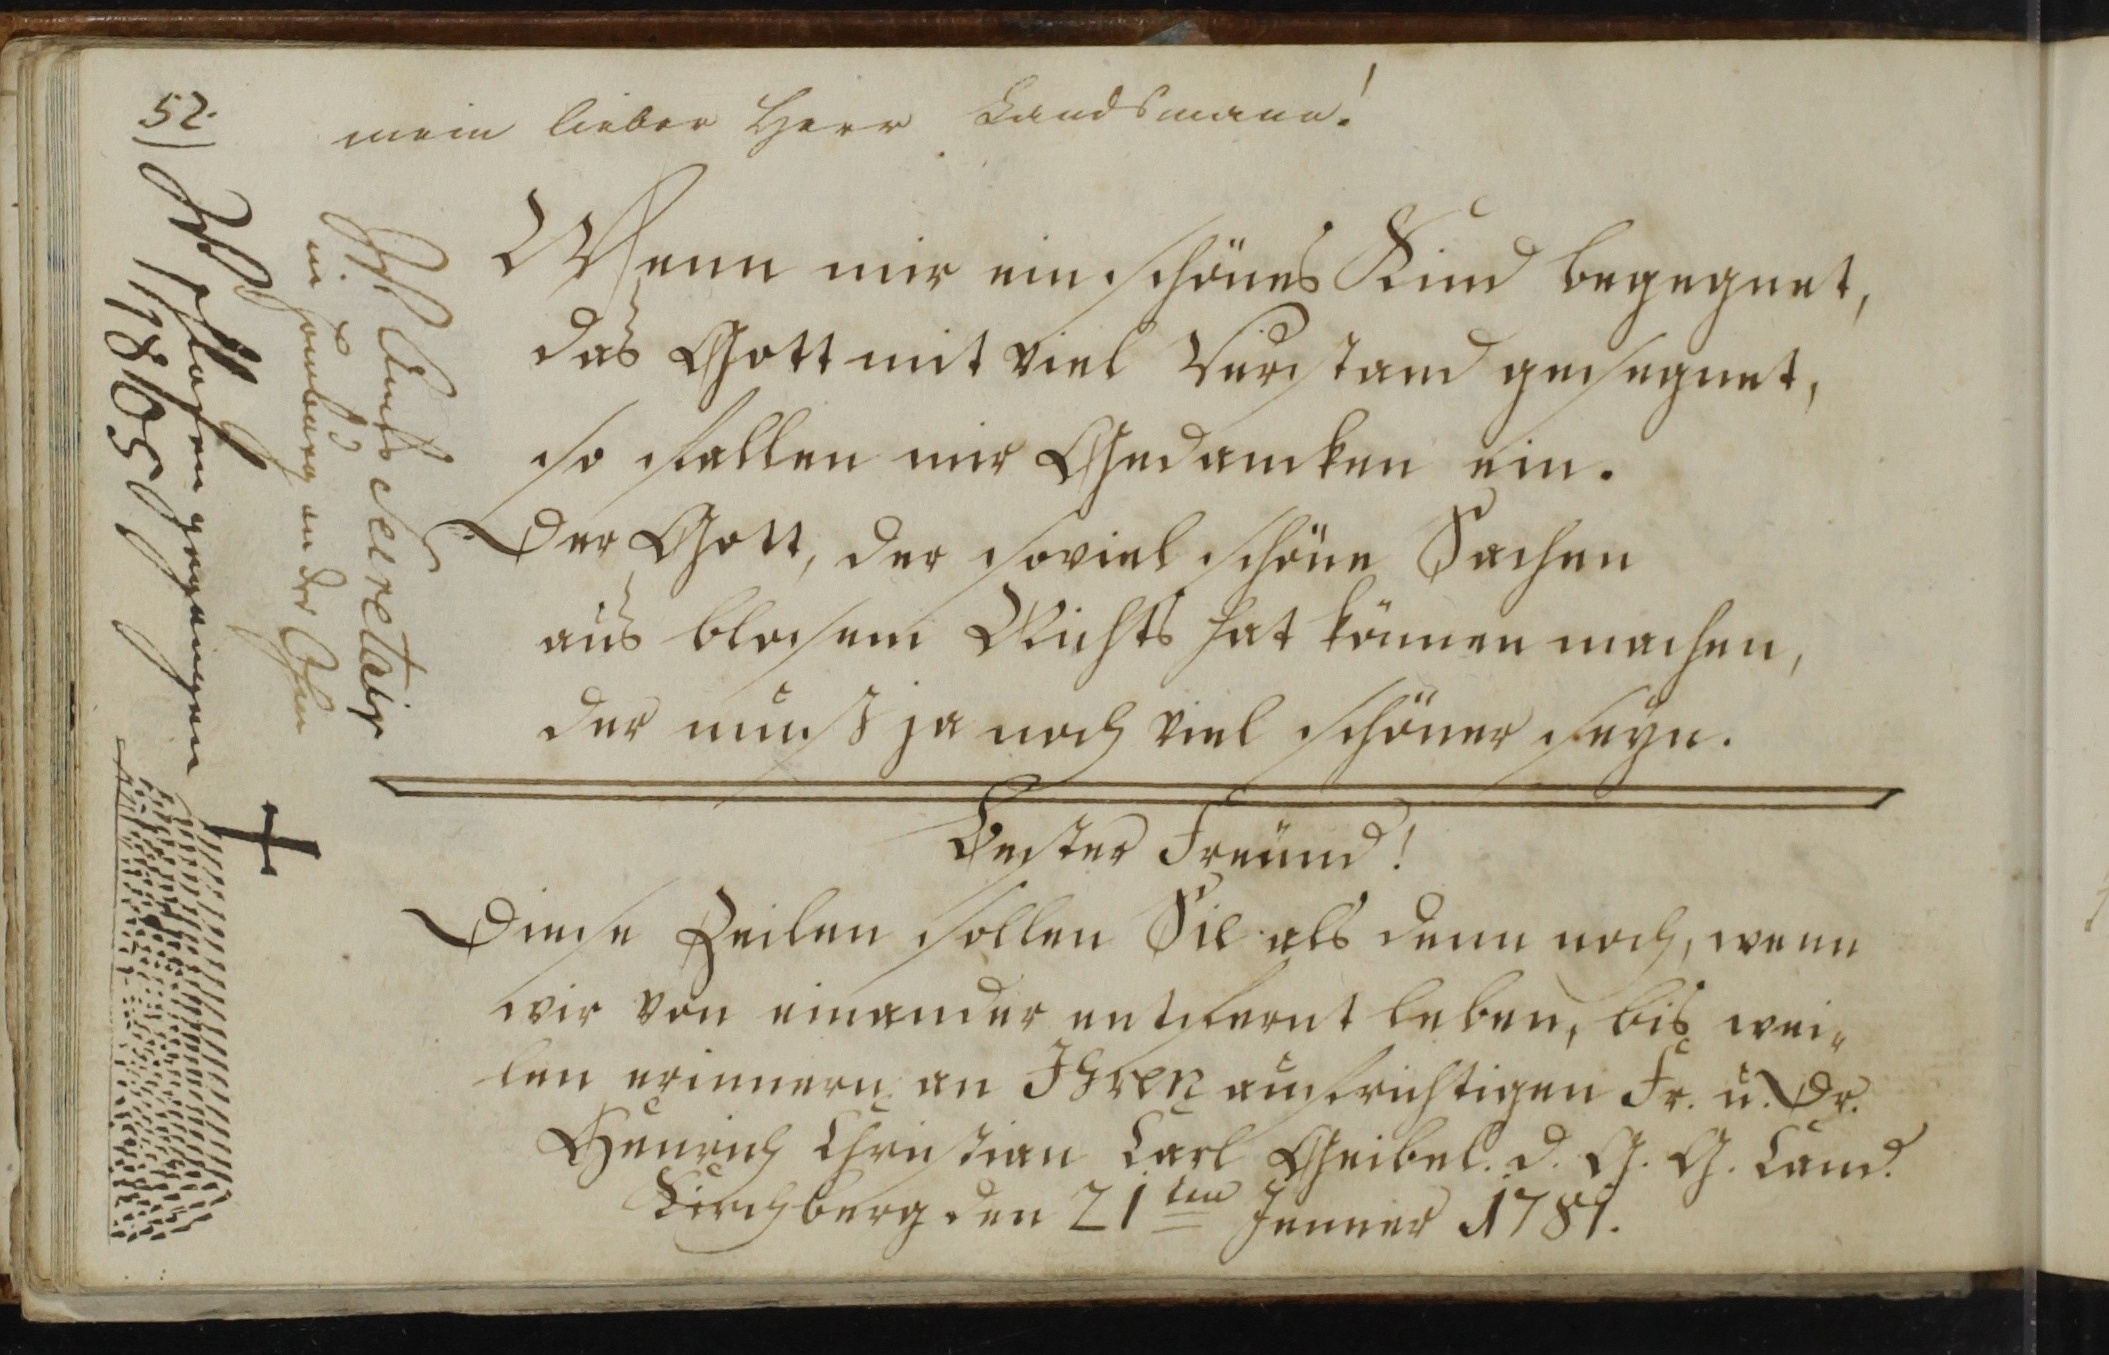 52.
mein lieber Herr Landsmann!
Wenn mir ein schönes Kind begegnet,
das Gott mit viel Verstand gesegnet,
so fallen mir Gedancken ein.
Der Gott, der soviel schöne Sachen
aus blosem Nichts hat können machen,
der muß ja noch viel schöner seyn.
Bester Freünd!
Diese Zeilen sollen Sie als denn noch, wenn
wir von einander entfernt leben, bis wei-
len erinnern an Ihren aufrichtigen Fr. u. Dr.
Henrich Christian Carl Geibel. d. G. G. Cand.
Kirchberg den 21ten Jenner 1781.
ist Amts Secretair
in Homburg an der Ohm
schlafen gegangen
1805